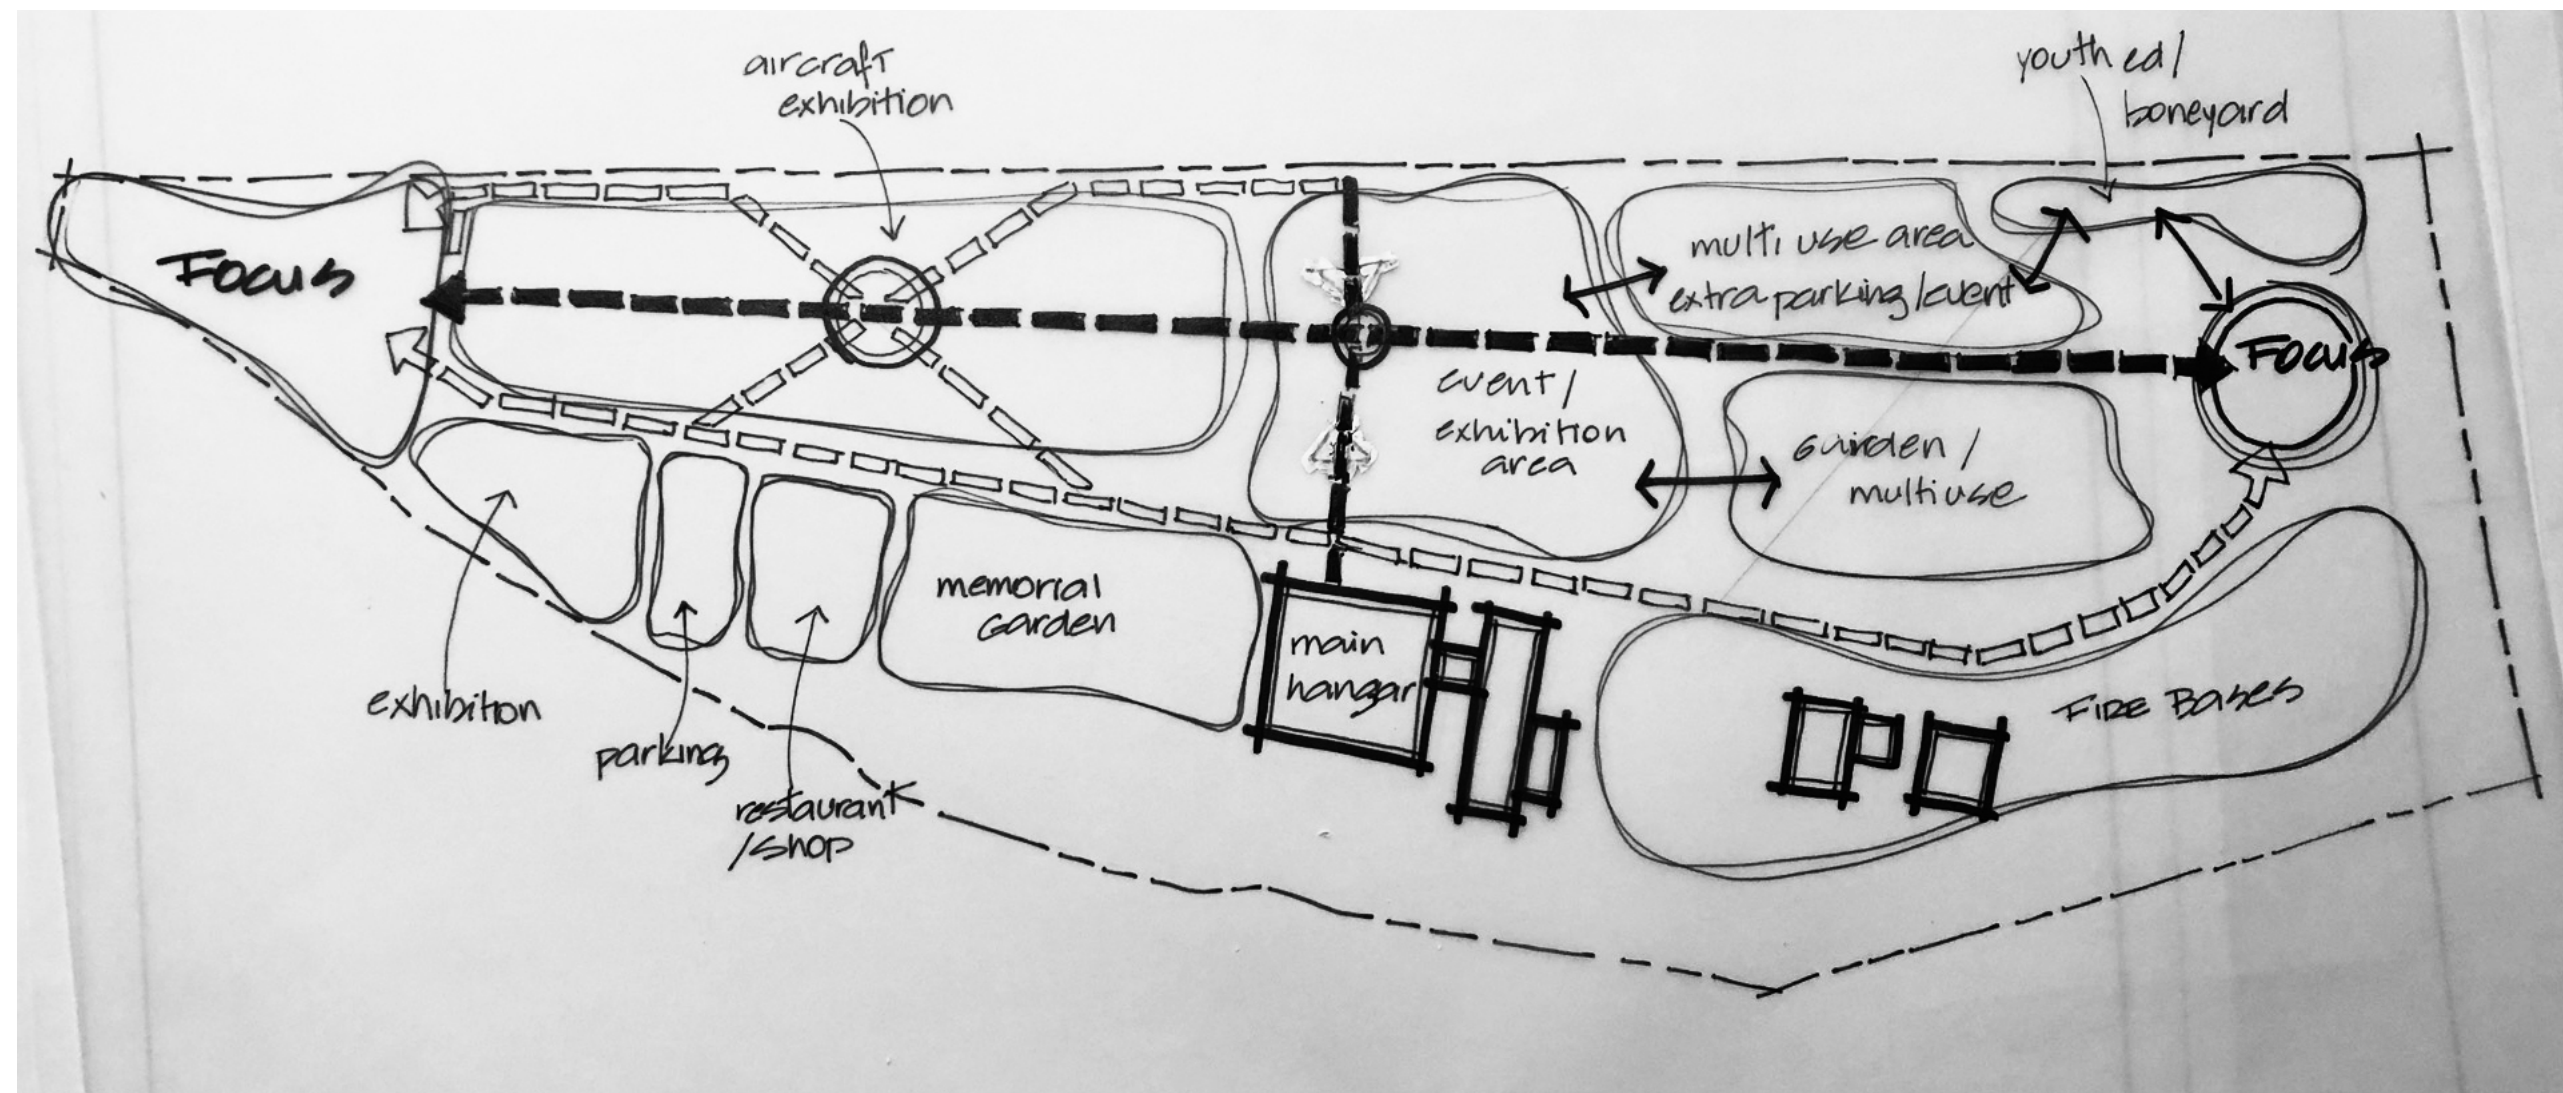 aircraft
exhibition
youth ed/
boneyard
Focus
multi use area
extra parking/event
Focus
event/
exhibition
area
Garden/
multiuse
memorial
Garden
main
hangar
exhibition
parking
restaurant
/shop
Fire Bases